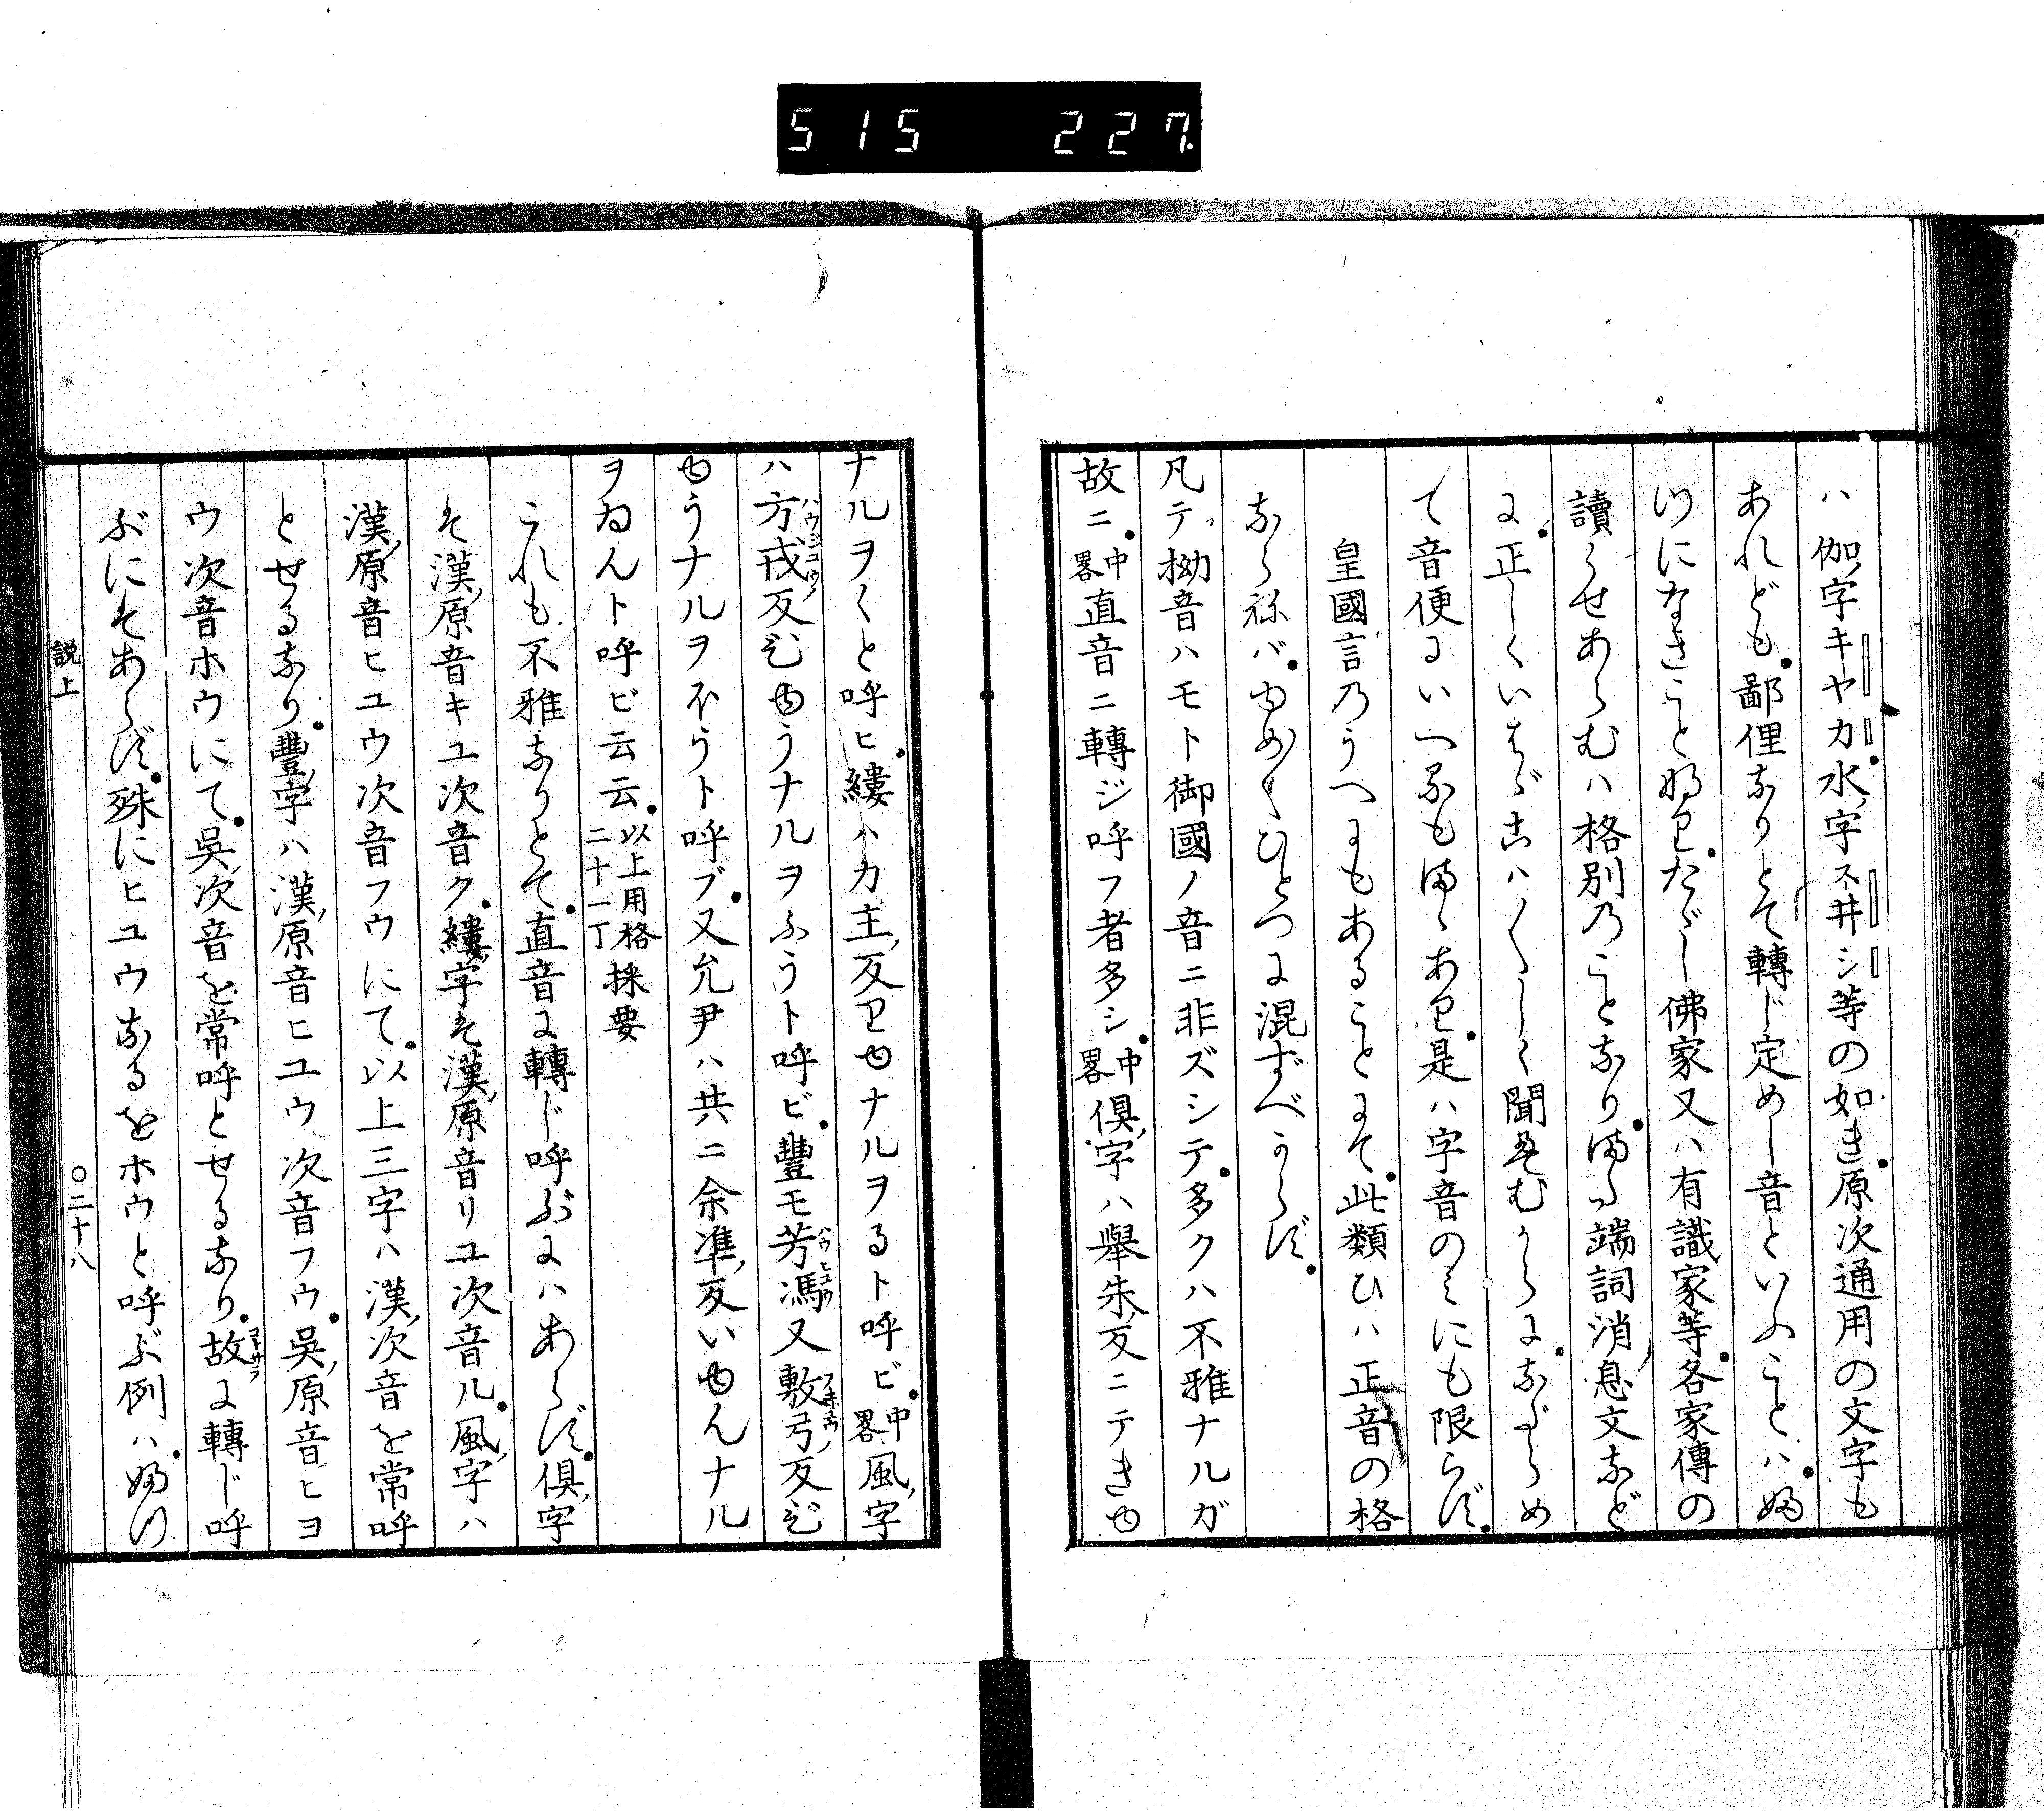 515 227
ハ伽ノ字キヤカ水ノ字スヰシ等の如き原次通用の文字も
あれども鄙俚なりとて轉じ定めし音といふことハかつ
つになきこと也たゞし佛家又ハ有識家等各家傳の
讀くせあらむハ格別のことなりまた端詞消息文など
に正しくいはゞこハ〴〵しく聞えむからになだらめ
て音便にいへるもまゝあり是ハ字音のミにも限らず
皇國言のうへにもあることにて此類ひハ正音の格
ならねバゆめ〳〵ひとつに混ずべからず
凡テ拗音ハモト御國ノ音ニ非ズシテ多クハ不雅ナルガ
故ニ中畧直音ニ轉ジ呼フ者多シ中畧倶ノ字ハ舉朱ノ反ニテきゆ
ナルヲくと呼ヒ縷ハカ主ノ反りゆナルヲるト呼ビ中畧風ノ字
ハ方戎ハウジユウノ反ひゆうナルヲふうト呼ビ豐モ芳馮ハウヒユウ又敷弓フキユウノ反ひ
ゆうナルヲほうト呼ブ又允尹ハ共ニ余準ノ反いゆんナル
ヲゐんト呼ビ云云以上用格二十一丁採要
これも不雅なりとて直音に轉じ呼ぶにハあらず倶ノ字
そ漢ノ原音キユ次音ク縷ノ字そ漢ノ原音リユ次音ル風ノ字ハ
漢ノ原音ヒユウ次音フウにて以上三字ハ漢ノ次音を常呼
とせるなり豐ノ字ハ漢ノ原音ヒユウ次音フウ吳ノ原音ヒヨ
ウ次音ホウにて吳ノ次音を常呼とせるなり故コトサラに轉じ呼
ぶにそあらず殊にヒユウなるをホウと呼ぶ例ハかつ
説上
〇二十八